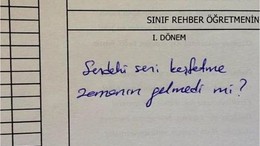 SINIF REHBER ÖĞRETMENİN
I. DÖNEM
Sendeki seni keşfetme
zamanın gelmedi mi?